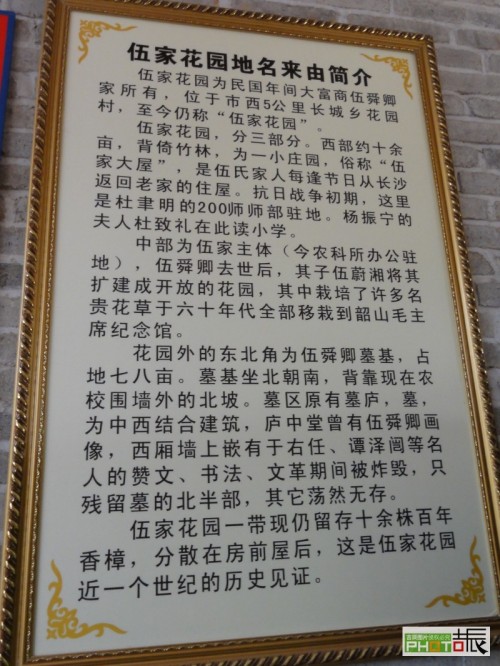 伍家花园地名来由简介
伍家花园为民国年间大富商伍舜卿
家所有，位于市西5公里长城乡花园
村，至今仍称“伍家花园”。
伍家花园，分三部分。西部约十余
亩，背倚竹林，为一小庄园，俗称“伍
家大屋”，是伍氏家人每逢节日从长沙
返回老家的住屋。抗日战争初期，这里
是杜聿明的200师师部驻地。杨振宁的
夫人杜致礼在此读小学。
中部为伍家主体（今农科所办公驻
地），伍舜卿去世后，其子伍蔚湘将其
扩建成开放的花园，其中栽培了许多名
贵花草于六十年代全部移栽到韶山毛主
席纪念馆。
花园外的东北角为伍舜卿墓基，占
地七八亩。墓基坐北朝南，背靠现在农
校围墙外的北坡。墓区原有墓庐，墓，
为中西结合建筑，庐中堂曾有伍舜卿画
像，西厢墙上嵌有于右任、谭泽闿等名
人的赞文、书法、文革期间被炸毁，只
残留墓的北半部，其它荡然无存。
伍家花园一带现仍留存十余株百年
香樟，分散在房前屋后，这是伍家花园
近一个世纪的历史见证。
PHOTO